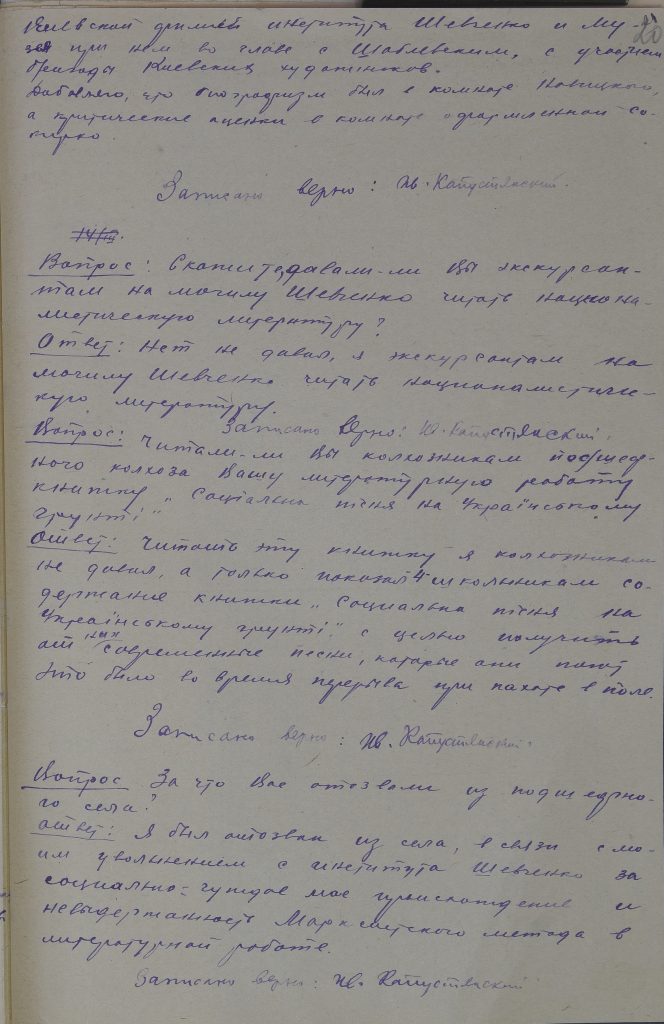 20
Киевской филией института Шевченко и Му-
зея при нем во главе с Шаблевским, с участием
бригады Киевских художников.
Добавляю, что биографизм был в комнате Новицкого,
а критические оценки в комнате оформленной
Записано верно: Ив. Капустянский.
14/III.
Вопрос: Скажите, давали-ли Вы экскурсан-
там на могилу Шевченко читать национа-
листическую литературу?
Ответ: Нет не давал, я экскурсантам на
могилу Шевченко читать националистиче-
скую литературу.
Записано верно: Ив. Капустянский.
Вопрос: Читали-ли Вы колхозникам подшеф-
ного колхоза Вашу литературную работу
книжку „Соціальна пісня на Українському
грунті"
Ответ: Читать эту книжку я колхозникам
не давал, а только показал 4 школьникам со-
держание книжки „Социальна пісня на
Українському грунті" с целью получить
от них современные песни, которые они поют
Это было во время перерыва при пахоте в поле.
Записано верно: Ив. Капустянский.
Вопрос За что Вас отозвали из подшефно-
го села?
Ответ: Я был отозван из села, в связи с мо-
им увольнением с института Шевченко за
социально-чуждое мое происхождение и
невыдержанность Марксистского метода в
литературной работе.
Записано верно: Ив. Капустянский